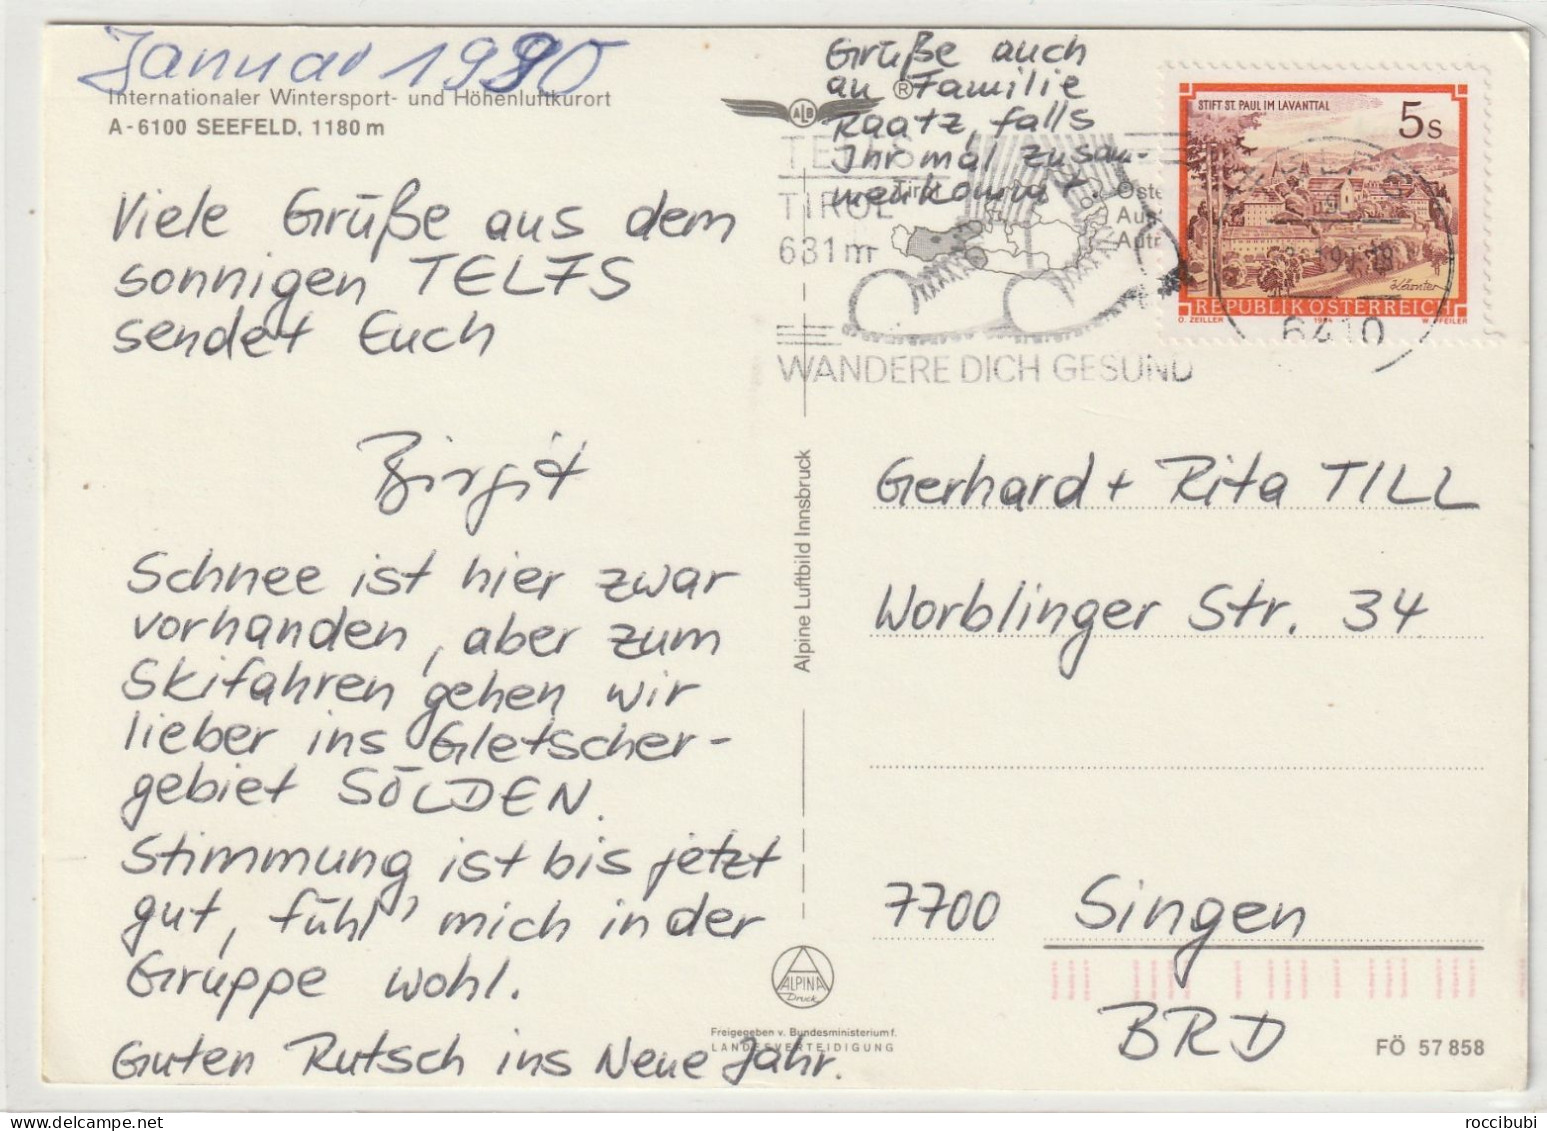 Januar 1990
Internationaler Wintersport- und Höhenluftkurort
A-6100 SEEFELD, 1180 m
Viele Grüße aus dem
sonnigen TELFS
sendet Euch
Birgit
Schnee ist hier zwar
vorhanden, aber zum
Skifahren gehen wir
lieber ins Gletscher-
gebiet SÖLDEN.
Stimmung ist bis jetzt
gut, fühl' mich in der
Gruppe wohl.
Guten Rutsch ins Neue Jahr.
Grüße auch
an Familie
Raatz, falls
Ihr mal zusam-
menkommt
ALB ®
TELFS
TIROL
631 m
Tirol
WANDERE DICH GESUND
STIFT ST. PAUL IM LAVANTTAL
5 S
REPUBLIK ÖSTERREICH
O. ZEILLER 1984 W. PFEILER
6410
Alpine Luftbild Innsbruck
Gerhard + Rita TILL
Worblinger Str. 34
7700 Singen
BRD
ALPINA
Druck
Freigegeben v. Bundesministerium f.
LANDESVERTEIDIGUNG
FÖ 57 858
roccibubi